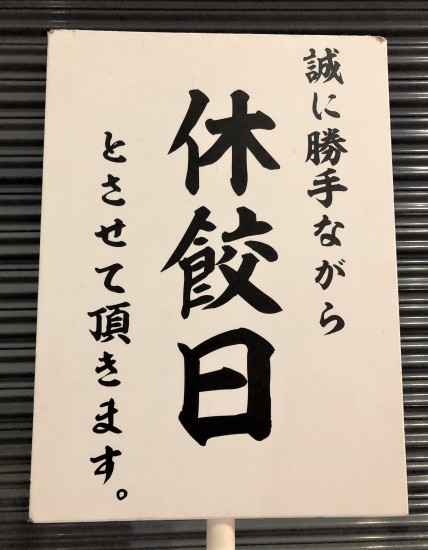 誠に勝手ながら
休餃日
とさせて頂きます。